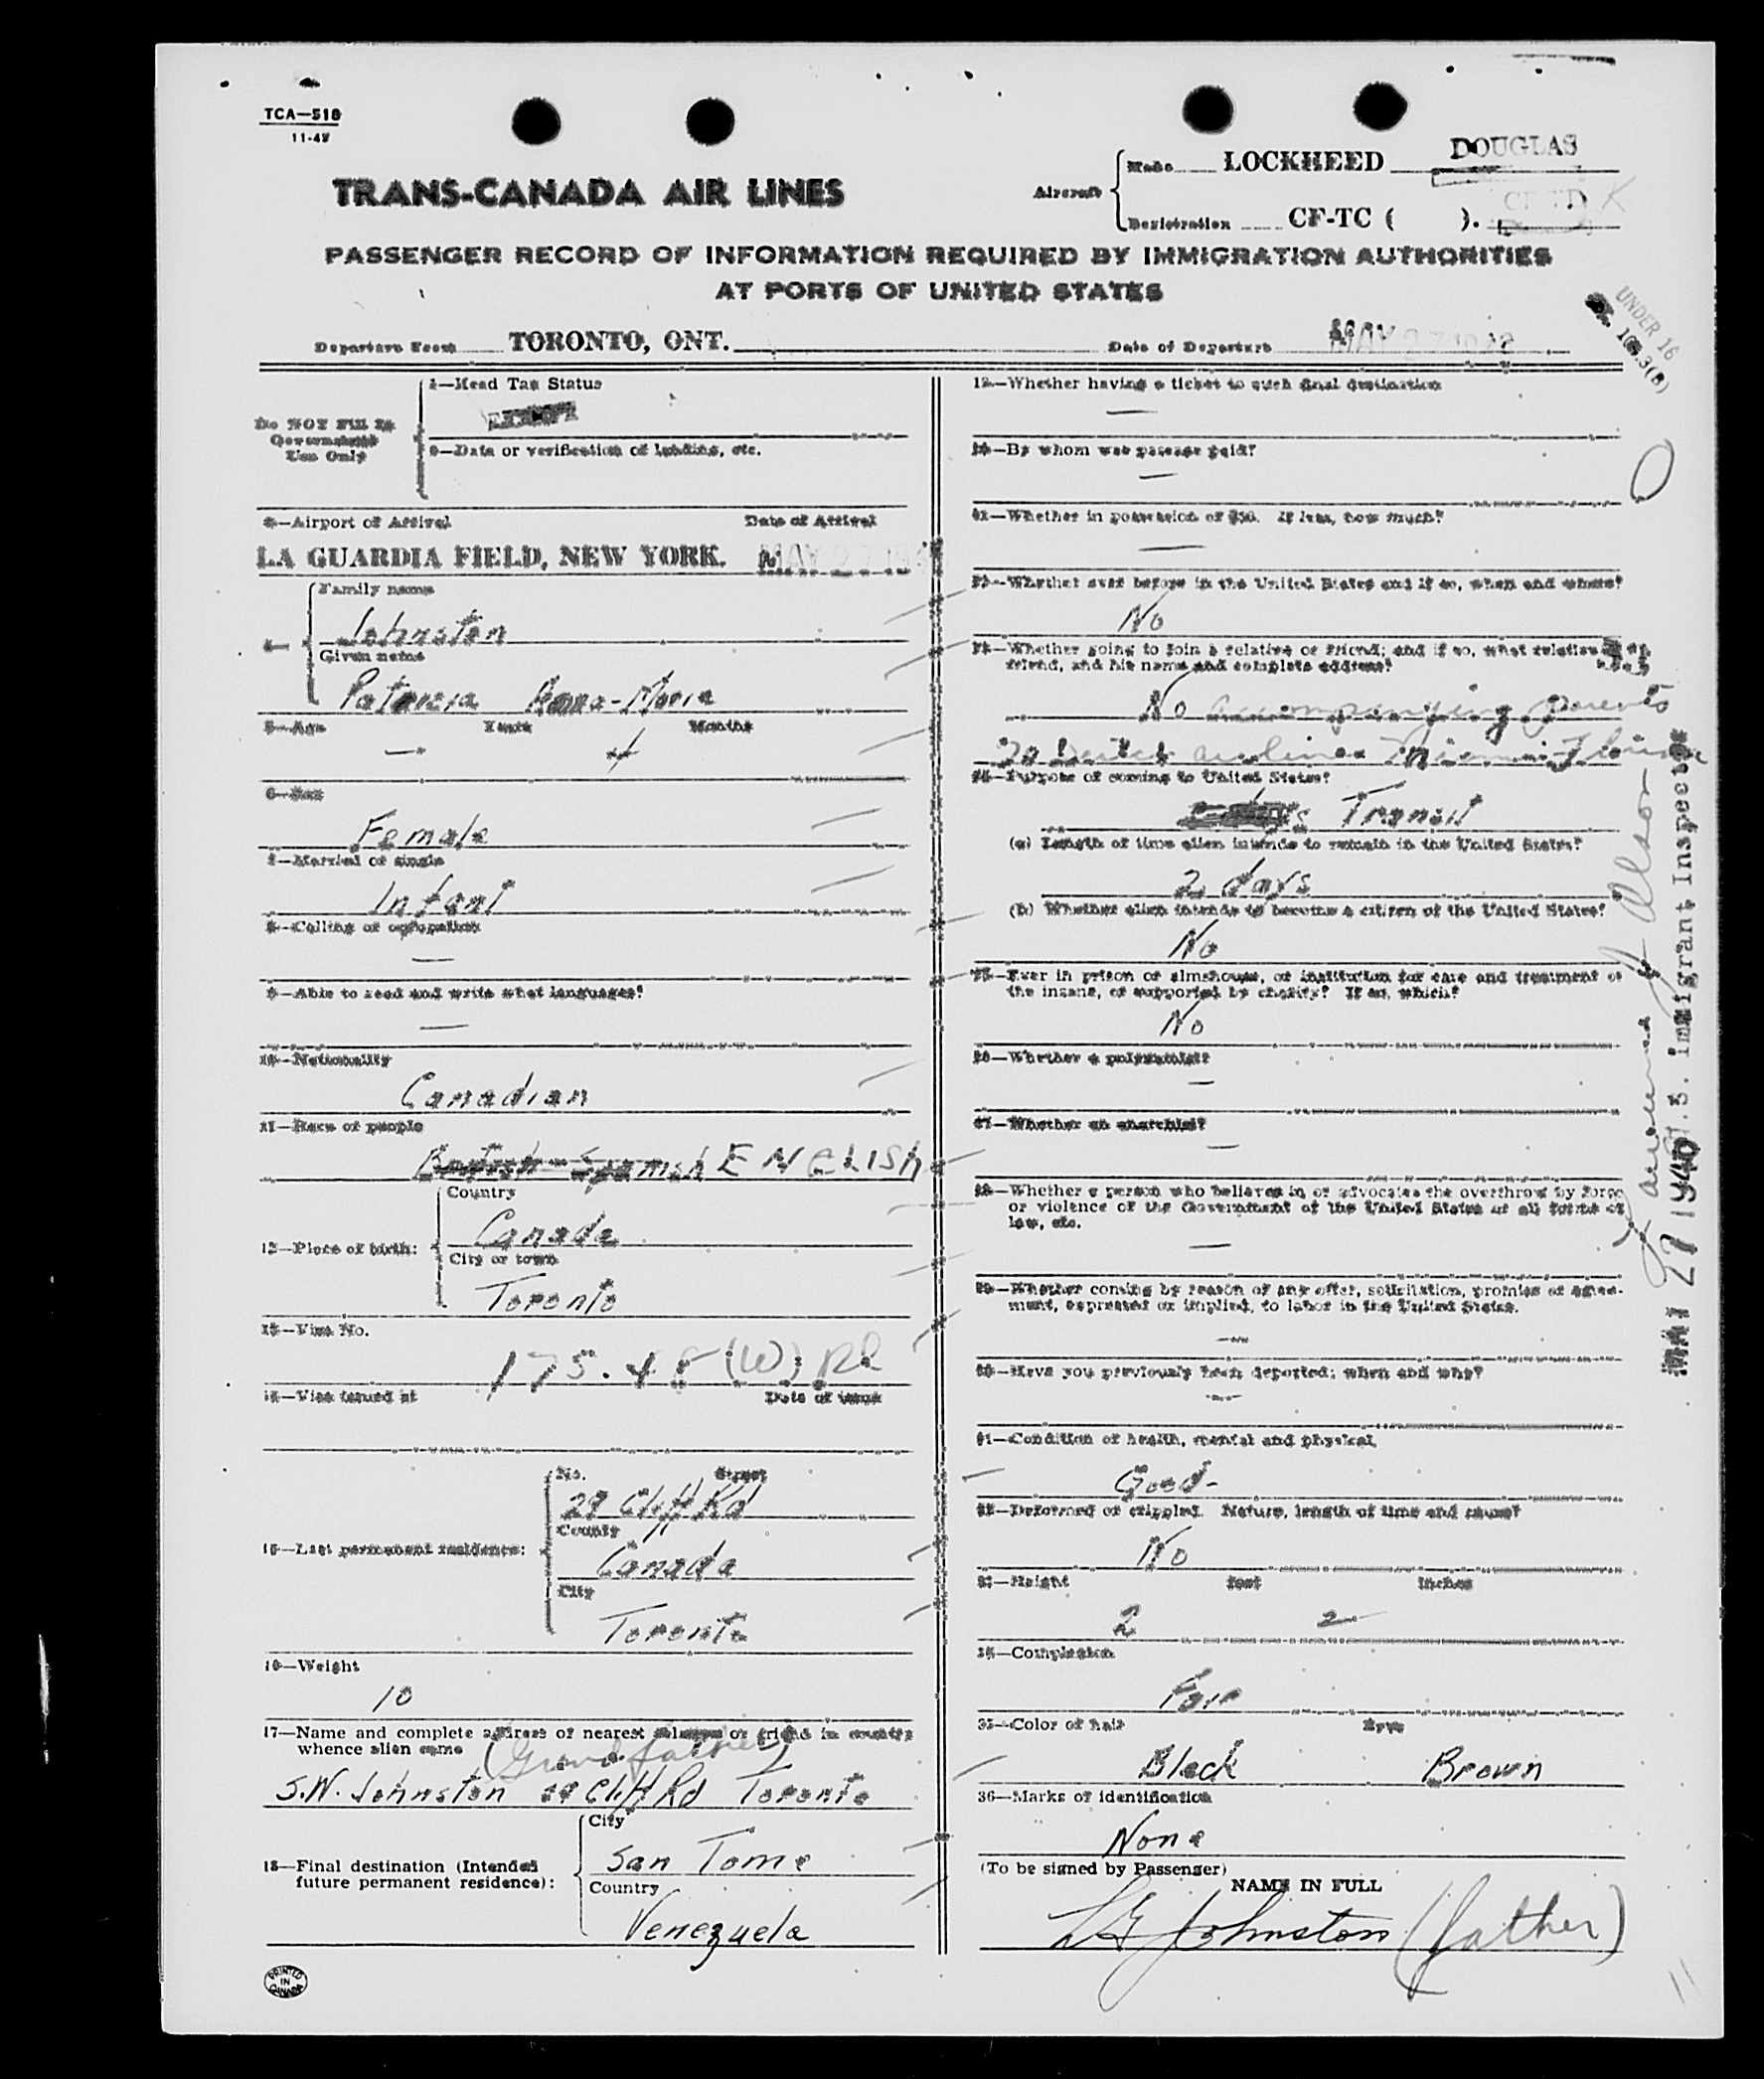 TCA—518
11-4
TRANS-CANADA AIR LINES
Aircraft
Make LOCKHEED DOUGLAS
Registration CF-TC ( ).
PASSENGER RECORD OF INFORMATION REQUIRED BY IMMIGRATION AUTHORITIES
AT PORTS OF UNITED STATES
UNDER 16
103.3(B)
Departure From TORONTO, ONT. Date of Departure MAY 27
Do NOT Fill In
Government
Use Only
1—Head Tax Status
2—Data or verification of landing, etc.
3—Airport of Arrival Date of Arrival
LA GUARDIA FIELD, NEW YORK. MAY 27
4—
Family name
Johnston
Given name
Patricia Anna-Maria
5—Age Years Months
— 4
6—Sex
Female
7—Married or single
Infant
8—Calling or occupation
—
9—Able to read and write what languages?
—
10—Nationality
Canadian
11—Race of people
British-Spanish ENGLISH
12—Place of birth:
Country
Canada
City or town
Toronto
13—Visa No.
175.4 (W)
14—Visa issued at Date of issue
15—Last permanent residence:
No. Street
29 Cliff Rd
County
Canada
City
Toronto
16—Weight
10
17—Name and complete address of nearest relative or friend in country
whence alien came (Grandfather)
S.W. Johnston 29 Cliff Rd Toronto
18—Final destination (Intended
future permanent residence):
City
San Tome
Country
Venezuela
PRINTED
IN
CANADA
19—Whether having a ticket to such final destination
—
20—By whom was passage paid?
—
21—Whether in possession of $50. If less, how much?
—
22—Whether ever before in the United States and if so, when and where?
No
23—Whether going to join a relative or friend; and if so, what relative or
friend, and his name and complete address?
No accompanying parents
To Dutch airlines Miami Florida
24—Purpose of coming to United States?
Transit
(a) Length of time alien intends to remain in the United States?
2 days
(b) Whether alien intends to become a citizen of the United States?
No
25—Ever in prison or almshouse, or institution for care and treatment of
the insane, or supported by charity? If so, which?
No
26—Whether a polygamist?
—
27—Whether an anarchist?
—
28—Whether a person who believes in or advocates the overthrow by force
or violence of the Government of the United States or all forms of
law, etc.
—
29—Whether coming by reason of any offer, solicitation, promise or agree-
ment, expressed or implied, to labor in the United States.
—
30—Have you previously been deported; when and why?
—
31—Condition of health, mental and physical
Good-
32—Deformed or crippled. Nature, length of time and cause?
No
33—Height feet inches
2 2
34—Complexion
Fair
35—Color of hair Eyes
Black Brown
36—Marks of identification
None
(To be signed by Passenger)
NAME IN FULL
Johnston (father)
11
MAY 27
Immigrant Inspector